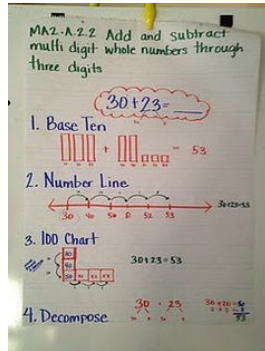 MA2.A.2.2 Add and subtract
multi digit whole numbers through
three digits
30+23=
1. Base Ten
+ = 53
2. Number Line
30 40 50 51 52 53
30+23=53
3. 100 Chart
30
40
50 51 52 53
30+23=53
4. Decompose
30 + 23
53